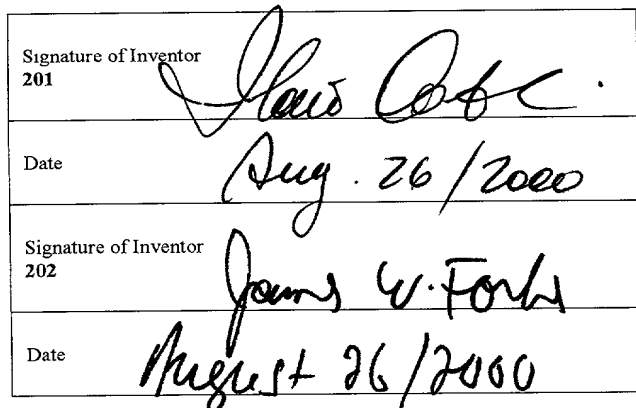 Signature of Inventor
201
Date
Aug. 26/2000
Signature of Inventor
202
James W. Forbes
Date
August 26/2000